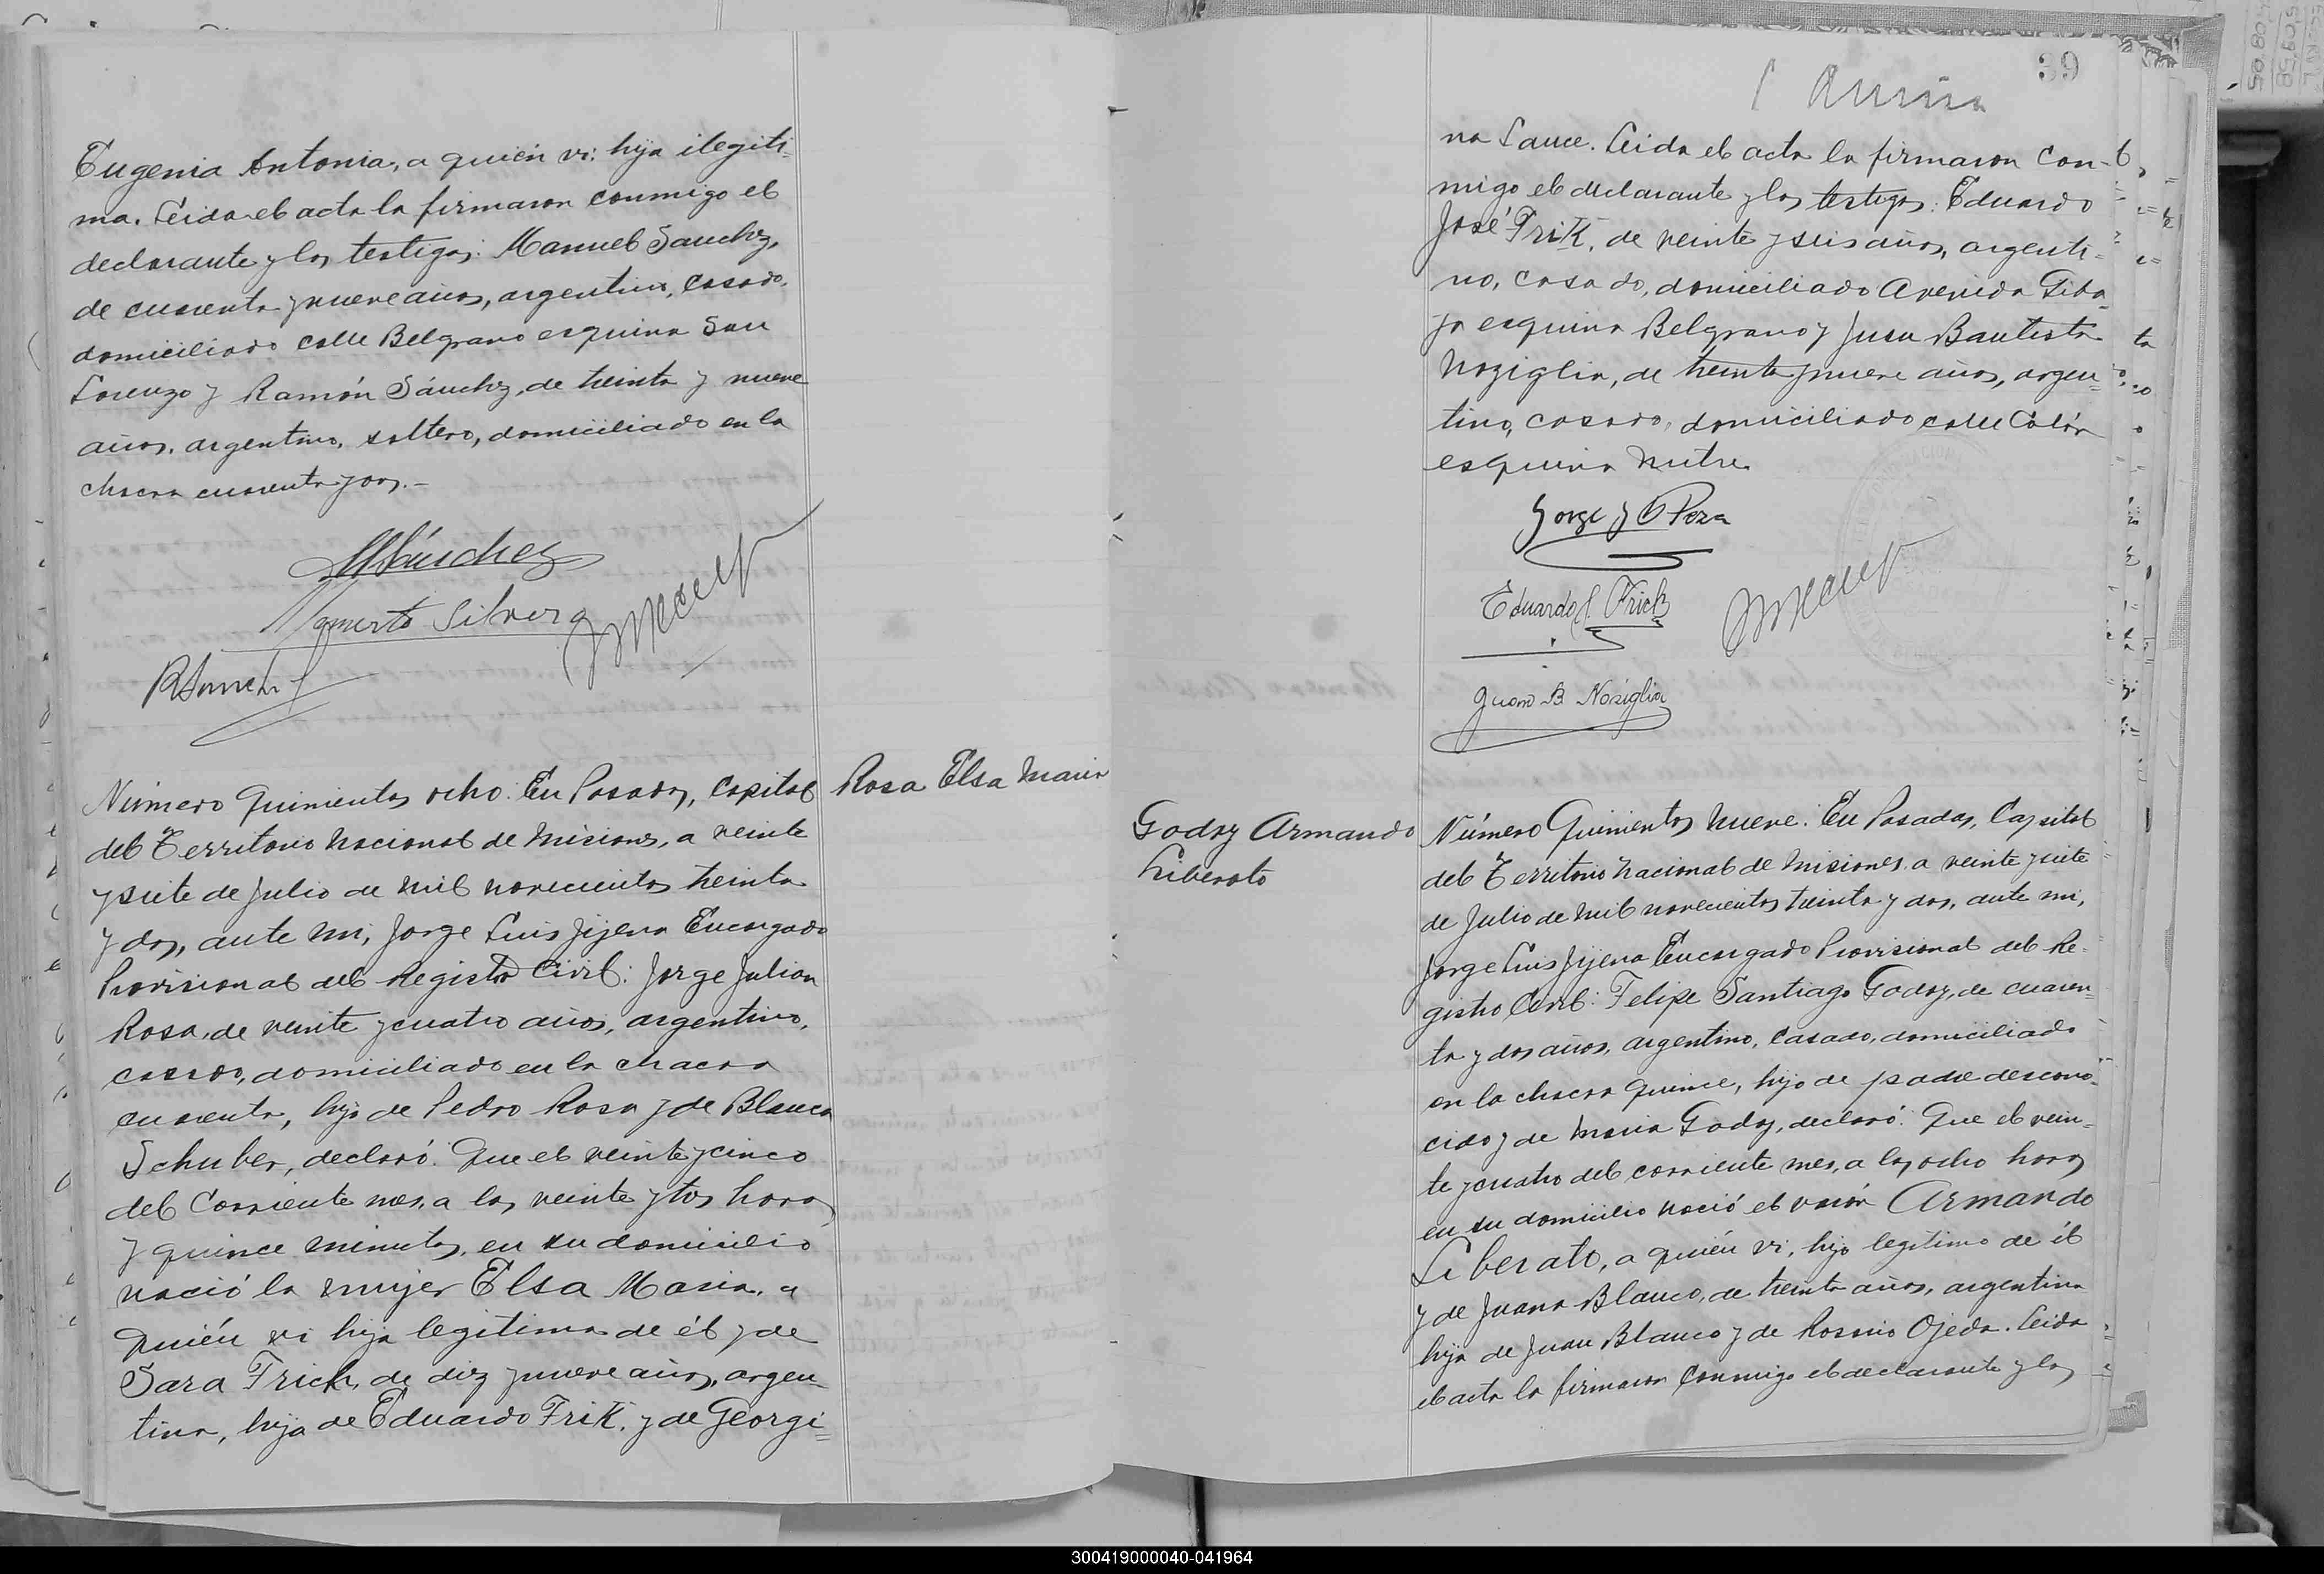 Eugenia Antonia, a quién vi: hija ilegiti-
ma. Leida el acta la firmaron conmigo el
declarante y los testigos: Manuel Sanchez,
de cuarenta y nueve años, argentino, casado,
domiciliado calle Belgrano esquina San
Lorenzo y Ramón Sánchez, de treinta y nueve
años, argentino, soltero, domiciliado en la
chacra cuarenta y dos.-
MSánchez
Silvera
Número Quinientos ocho: En Posadas, Capital
del Territorio Nacional de Misiones, a veinte
y siete de Julio de mil novecientos treinta
y dos, ante mi, Jorge Luis Jijena Encargado
Provisional del Registro Civil: Jorge Julian
Rosa, de veinte y cuatro años, argentino,
casado, domiciliado en la chacra
cuarenta, hijo de Pedro Rosa y de Blanca
Schuber, declaró: Que el veinte y cinco
del Corriente mes, a las veinte y tres horas
y quince minutos, en su domicilio
nació la mujer Elsa Maria, a
quién vi hija legitima de él y de
Sara Frich, de diez y nueve años, argen-
tina, hija de Eduardo Frik, y de Georgi=
Rosa Elsa Maria
39
na Sauce. Leida el acta la firmaron con-
migo el declarante y los testigos: Eduardo
José Frik, de veinte y seis años, argenti-
no, casado, domiciliado Avenida
esquina Belgrano y Juan Bautista
Noziglia, de treinta y nueve años, argen-
tino, casado, domiciliado calle Colón
esquina Mitre.
Jorge J Rosa
Eduardo J. Frick
Juan B Noziglia
Godoy Armando
Liberato
Número Quinientos nueve: En Posadas, Capital
del Territorio Nacional de Misiones, a veinte y siete
de Julio de mil novecientos treinta y dos, ante mi,
Jorge Luis Jijena Encargado Provisional del Re-
gistro Civil: Felipe Santiago Godoy, de cuaren-
ta y dos años, argentino, casado, domiciliado
en la chacra quince, hijo de padre descono-
cido y de Maria Godoy, declaró: Que el vein-
te y cuatro del corriente mes, a las ocho horas
en su domicilio nació el varón Armando
Liberato, a quién vi, hijo legitimo de él
y de Juana Blanco, de treinta años, argentina
hija de Juan Blanco y de Rosario Ojeda. Leida
el acta la firmaron conmigo el declarante y los
300419000040-041964